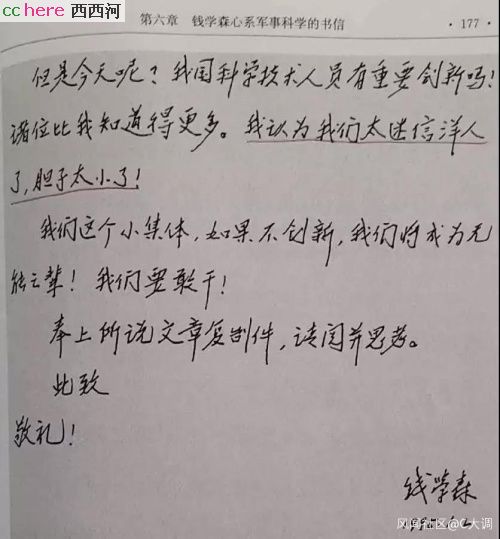 cchere 西西河
第六章 钱学森心系军事科学的书信 ·177·
但是今天呢？我国科学技术人员有重要创新吗！
诸位比我知道得更多。我认为我们太迷信洋人
了，胆子太小了！
我们这个小集体，如果不创新，我们将成为无
能之辈！我们要敢干！
奉上所说文章复制件，请阅并思考。
此致
敬礼！
钱学森
@C大调